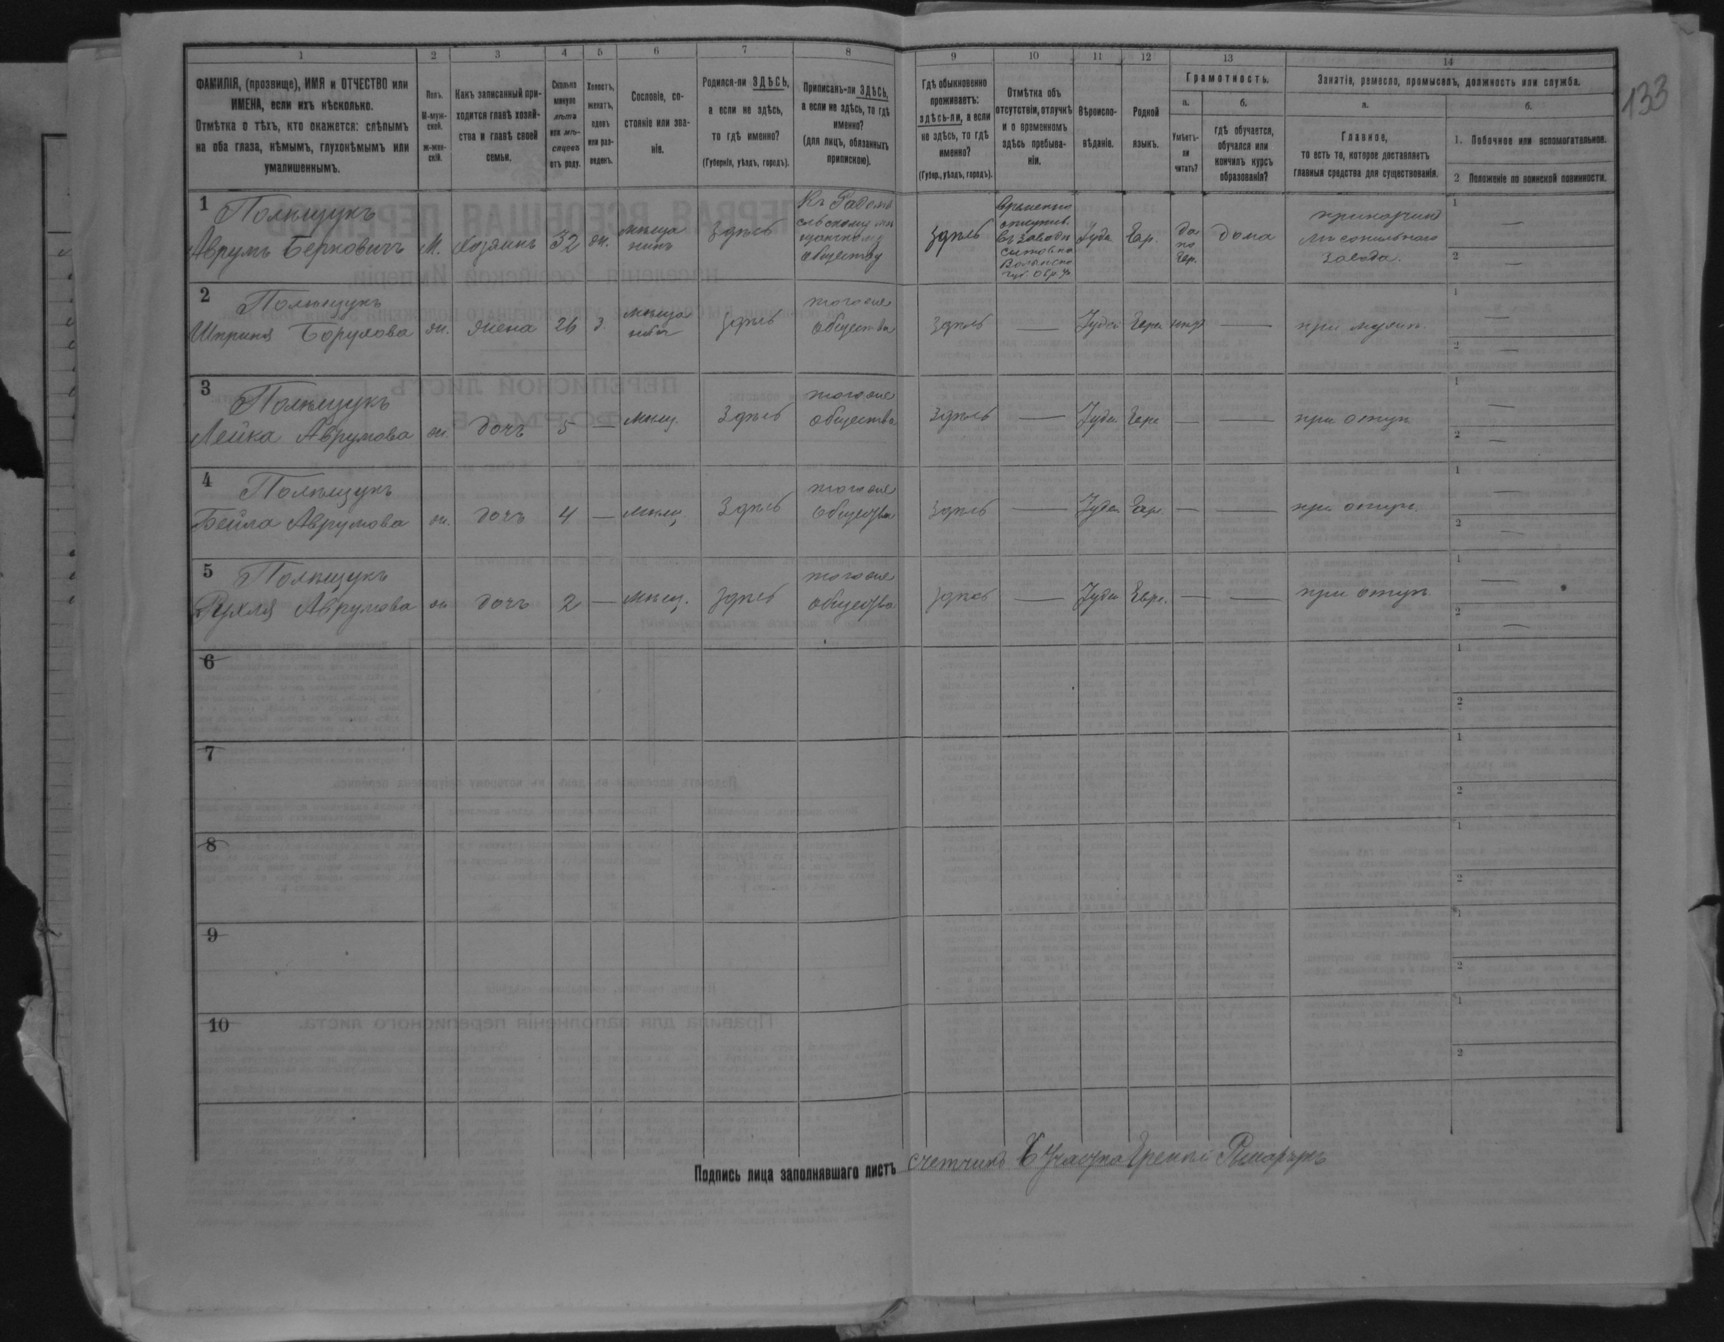 133
1 2 3 4 5 6 7 8 9 10 11 12 13 14
ФАМИЛІЯ, (прозвище), ИМЯ и ОТЧЕСТВО или
ИМЕНА, если ихъ нѣсколько.
Отмѣтка о тѣхъ, кто окажется: слѣпымъ
на оба глаза, нѣмымъ, глухонѣмымъ или
умалишеннымъ.
Полъ.
М-муж-
ской.
ж-жен-
скій.
Какъ записанный при-
ходится главѣ хозяй-
ства и главѣ своей
семьи.
Сколько
минуло
лѣтъ
или мѣ-
сяцевъ
отъ роду.
Холостъ,
женатъ,
вдовъ
или раз-
веденъ.
Сословіе, со-
стояніе или зва-
ніе.
Родился-ли ЗДѢСЬ,
а если не здѣсь,
то гдѣ именно?
(Губернія, уѣздъ, городъ).
Приписанъ-ли ЗДѢСЬ,
а если не здѣсь, то гдѣ
именно?
(для лицъ, обязанныхъ
припискою).
Гдѣ обыкновенно
проживаетъ:
здѣсь-ли, а если
не здѣсь, то гдѣ
именно?
(Губер., уѣздъ, городъ).
Отмѣтка объ
отсутствіи, отлучкѣ
и о временномъ
здѣсь пребыва-
ніи.
Вѣроиспо-
вѣданіе.
Родной
языкъ.
Грамотность.
а.
Умѣетъ-
ли
читать?
б.
гдѣ обучается,
обучался или
кончилъ курсъ
образованія?
Занятія, ремесло, промыселъ, должность или служба.
а.
Главное,
то есть то, которое доставляетъ
главныя средства для существованія.
б.
1. Побочное или вспомогательное.
2 Положеніе по воинской повинности.
1 Полищукъ
Аврумъ Берковичъ М. Хозяинъ 32 ж. мѣща
нинъ здѣсь
обществу
здѣсь
Временно
Іуде. Евр. да
по
Евр. дома
завода.
1 —
2 —
2 Полищукъ
Борухова ж. жена 26 з. здѣсь того же
общества здѣсь — Іудей Евре нѣтъ — при мужѣ.
1 —
2 —
3 Полищукъ
Лейка Аврумова ж. дочь 5 — мѣщ. здѣсь того же
общества здѣсь — Іудей Евре — — при отцѣ
1 —
2 —
4 Полищукъ
Бейла Аврумова ж. дочь 4 — мѣщ. здѣсь того же
общества здѣсь — Іудей Евр. — — при отцѣ.
1 —
2 —
5 Полищукъ
Рухля Аврумова ж. дочь 2 — мѣщ. здѣсь того же
общества здѣсь — Іудей Евре. — — при отцѣ
1 —
2 —
6
1
2
7
1
2
8
1
2
9
1
2
10
1
2
Подпись лица заполнявшаго листъ счетчикъ участка